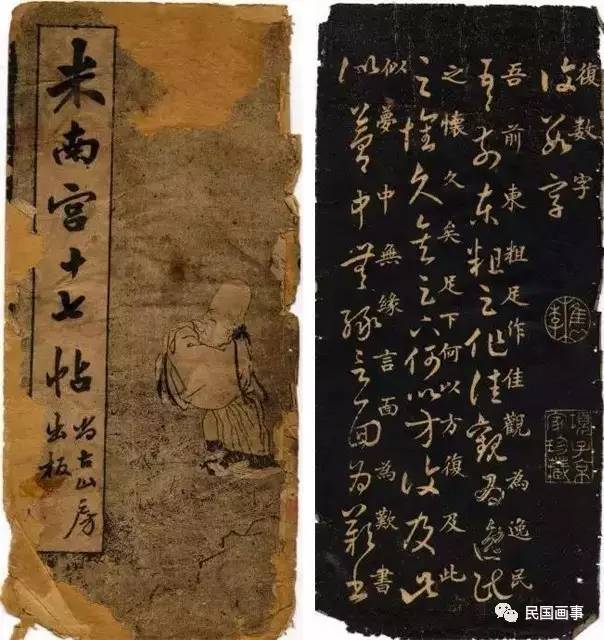 米南宫十七帖
尚古山房
出板
復数字
復数字
吾前東粗足作佳觀為逸民
吾前東粗足作佳觀為逸民
之懷久矣足下何以方復及此
之懷久矣足下何以方復及此
似夢中無緣言面為歎書
似夢中無緣言面為歎書
項子京
家珍藏
民国画事